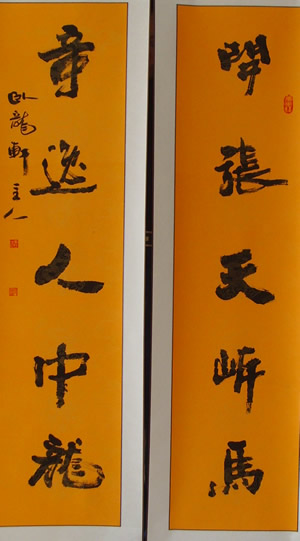 開張天岸馬
奇逸人中龍
卧龍軒主人